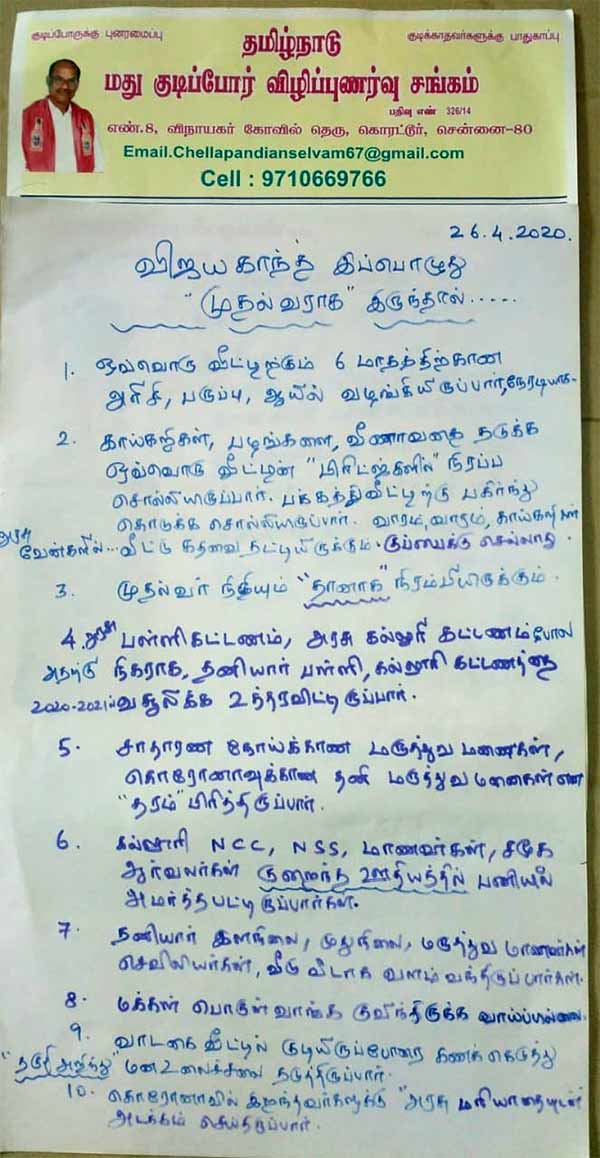 குடிப்போருக்கு புனரமைப்பு
குடிக்காதவர்களுக்கு பாதுகாப்பு
தமிழ்நாடு
மது குடிப்போர் விழிப்புணர்வு சங்கம்
பதிவு எண் 326/14
எண்.8, விநாயகர் கோவில் தெரு, கொரட்டூர், சென்னை-80
Email.Chellapandianselvam67@gmail.com
Cell : 9710669766
26.4.2020.
விஜயகாந்த் இப்பொழுது
"முதல்வராக" இருந்தால்.....
1. ஒவ்வொரு வீட்டிற்கும் 6 மாதத்திற்கான
அரிசி, பருப்பு, ஆயில் வழங்கியிருப்பார், நேரடியாக.
2. காய்கறிகள், பழங்களை, வீணாவதை தடுக்க
ஒவ்வொரு வீட்டின் "பிரிட்ஜ்களில்" நிரப்ப
சொல்லியிருப்பார். பக்கத்து வீட்டிற்கு பகிர்ந்து
கொடுக்க சொல்லியிருப்பார். வாரம், வாரம், காய்கறிகள்
அரசு வேன்களில்... வீட்டு கதவை தட்டியிருக்கும். குப்பைக்கு செல்லாது.
3. முதல்வர் நிதியும் "தானாக" நிரம்பியிருக்கும்.
4. அரசு பள்ளி கட்டணம், அரசு கல்லூரி கட்டணம் போல
அதற்கு நிகராக, தனியார் பள்ளி, கல்லூரி கட்டணத்தை
2020-2021ல் வசூலிக்க உத்தரவிட்டிருப்பார்.
5. சாதாரண நோய்க்கான மருத்துவ மனைகள்,
கொரோனாவுக்கான தனி மருத்துவ மனைகள் என
"தரம்" பிரித்திருப்பார்.
6. கல்லூரி NCC, NSS, மாணவர்கள், சமூக
ஆர்வலர்கள் குறைந்த ஊதியத்தில் பணியில்
அமர்த்தபட்டிருப்பார்கள்.
7. தனியார் இளநிலை, முதுநிலை, மருத்துவ மாணவர்கள்
செவிலியர்கள், வீடு வீடாக வலம் வந்திருப்பார்கள்.
8. மக்கள் பொருள் வாங்க குவிந்திருக்க வாய்ப்பில்லை.
9. வாடகை வீட்டில் குடியிருப்போரை கணக்கெடுத்து
"தகுதி அறிந்து" மன உலைச்சலை தடுத்திருப்பார்.
10. கொரோனாவில் இறந்தவர்களுக்கு "அரசு மரியாதையுடன்
அடக்கம் செய்திருப்பார்.